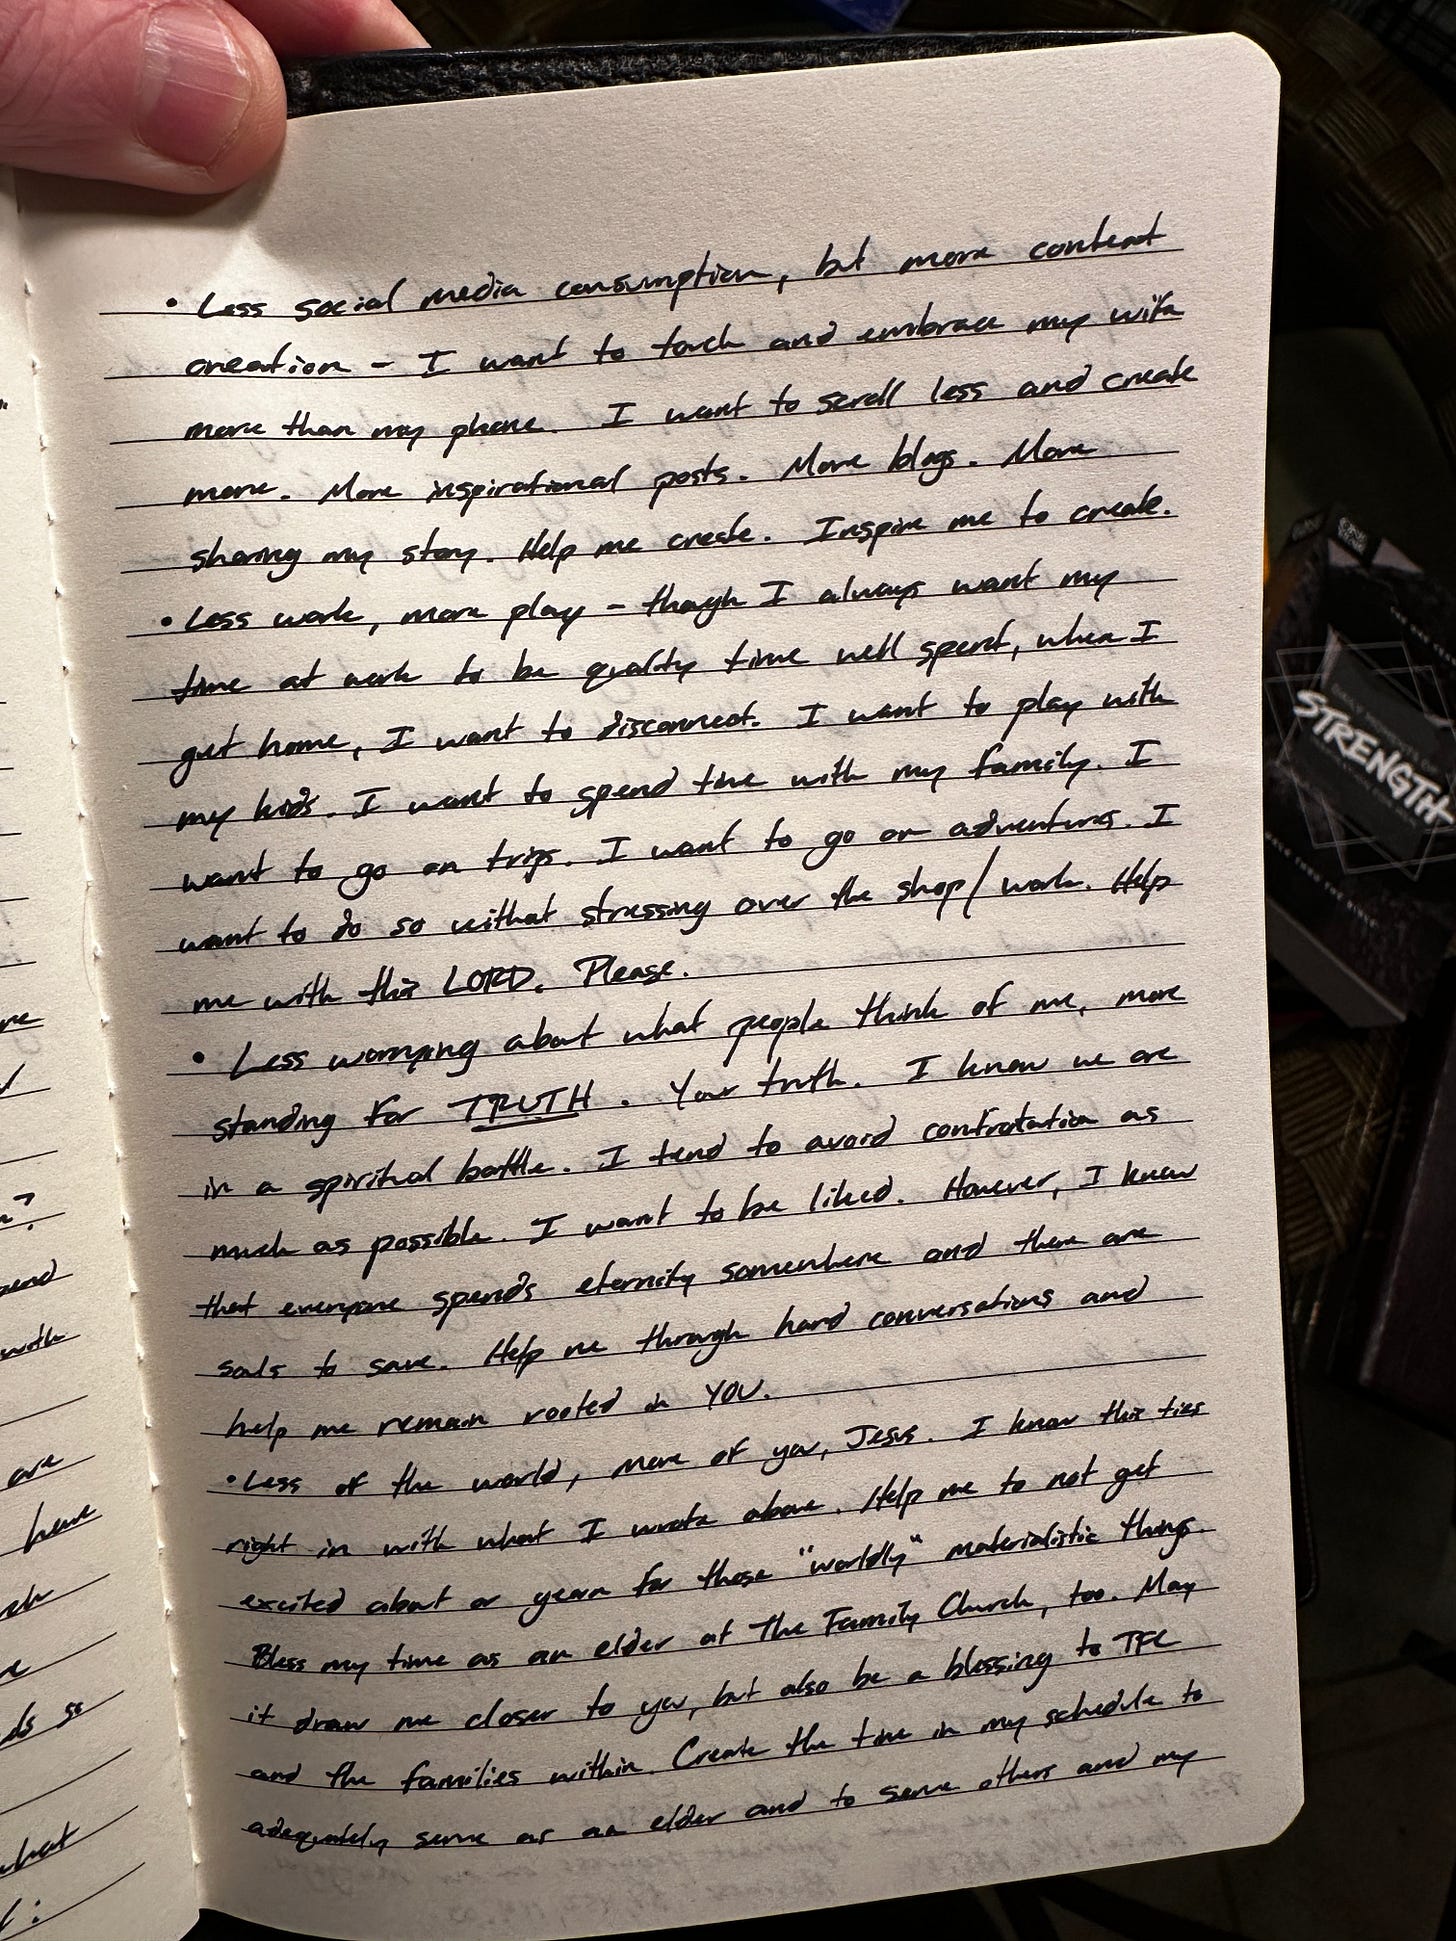 • Less social media consumption, but more content
creation - I want to touch and embrace my wife
more than my phone. I want to scroll less and create
more. More inspirational posts. More blogs. More
sharing my story. Help me create. Inspire me to create.
• Less work, more play - though I always want my
time at work to be quality time well spent, when I
get home, I want to disconnect. I want to play with
my kids. I want to spend time with my family. I
want to go on trips. I want to go on adventures. I
want to do so without stressing over the shop/work. Help
me with this LORD. Please.
• Less worrying about what people think of me, more
standing for TRUTH. Your truth. I know we are
in a spiritual battle. I tend to avoid confrotation as
much as possible. I want to be liked. However, I know
that everyone spends eternity somewhere and there are
souls to save. Help me through hard conversations and
help me remain rooted in YOU.
• Less of the world, more of you, Jesus. I know this ties
right in with what I wrote above. Help me to not get
excited about or yearn for those "worldly" materialistic things.
Bless my time as an elder at The Family Church, too. May
it draw me closer to you, but also be a blessing to TFC
and the families within. Create the time in my schedule to
adequately serve as an elder and to serve others and my
are
have
what
STRENGTH